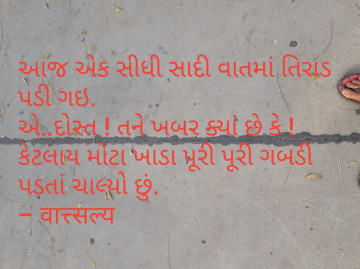 આજ એક સીધી સાદી વાતમાં તિરાડ
પડી ગઇ.
એ..દોસ્ત ! તને ખબર ક્યાં છે કે !
કેટલાય મોટા ખાડા પૂરી પૂરી ગબડી
પડતાં ચાલ્યો છું.
– વાત્ત્સલ્ય